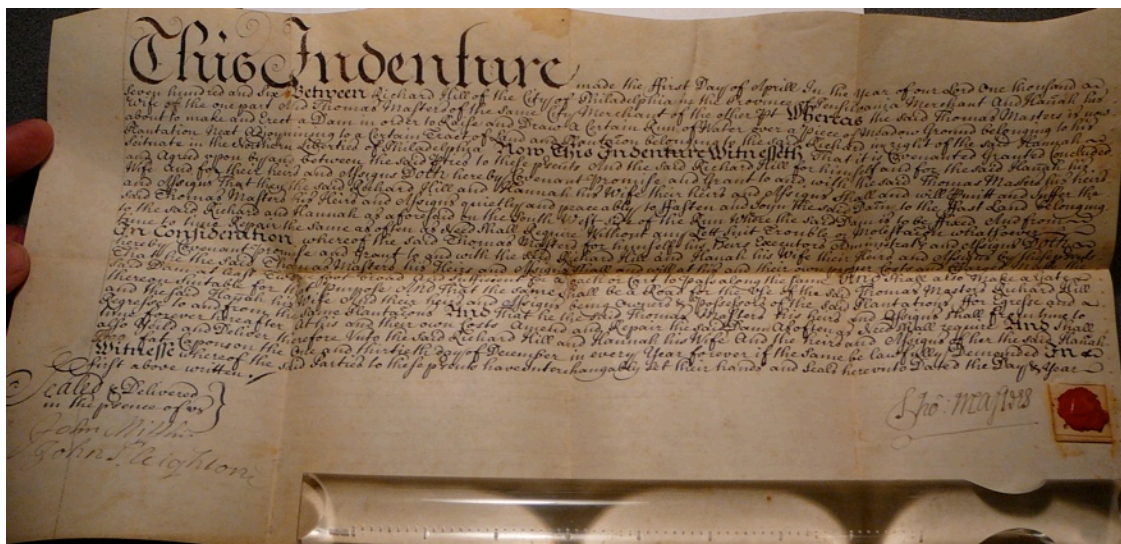 This Indenture made the First Day of Aprill In the Year of our Lord One thousand and
Seven hundred and Six Between Richard Hill of the City of Philadelphia in the Province of Pensilvania Merchant And Hañah his
Wife of the one part And Thomas Masters of the Same City Merchant of the other Pt Whereas the said Thomas Masters is now
about to make and Erect a Dam in order to Raise and Draw a Certain Run of Water over a Piece of Meadow Ground belonging to his
Plantation Next Adjoyning to a Certain Tract of Land and Plantation belonging to the said Richard in right of the said Hannah
Scituate in the Northern Liberties of Philadelphia Now This Indenture Witnesseth That it is Covenanted Granted Concluded
and Agreed upon by and between the said Ptes to these presents And the said Richard Hill for himself and for the said Hañah his
Wife And for their heirs and Assigns Doth hereby Covenant Promise and Grant to and with the said Thomas Masters his heirs
and Assigns That they the said Richard Hill and Hannah his Wife their heirs and Assigns Shall and will Permitt and Suffer the
said Thomas Masters his Heirs and Assigns quietly and peaceably to Fasten and Joyn the said Dam to the Land belonging
to the said Richard and Hannah as aforesaid on the South West side of the Run Where the said Dam is to be fixed And from
time to time Repair the Same as often as Need Shall Require Without any Lett Suit Trouble or Molestation whatsoever
In Consideration whereof the said Thomas Masters for himself his Heirs Executors Administrators and Assigns Doth
hereby Covenant Promise and Grant to and with the said Richard Hill and Hañah his Wife their Heirs and Assigns by these presents
That he the said Thomas Masters his Heirs and Assigns Shall and will at his and their own proper Costs and Charges make the
said Dam at least for a Cart to pass along the Same And Shall also Make a Gate
thereon Suitable for that Purpose And That the Same Shall be a Road for the Use of the said Thomas Masters Richard Hill
and the said Hañah his Wife And their heirs and Assigns being Owners & Possessors of the said Plantations for Egress and
Regress to and from the Same Plantacons And That he the said Thomas Masters his Heirs and Assigns Shall from time to
time forever hereafter At his and their own Costs Amend and Repair the said Dam As often as Need Shall require And Shall
also Yeild and Deliver therefore Unto the said Richard Hill and Hannah his Wife And the heirs and Assigns of her the said Hañah
upon the One and thirtieth Day of December in every Year forever if the Same be lawfully Demanded In
Witnesse whereof the said Parties to these presents have Interchangably Set their hands and Seals hereunto Dated the Day & Year
first above written
Sealed & Delivered
in the presence of us
Tho: Masters
John
John